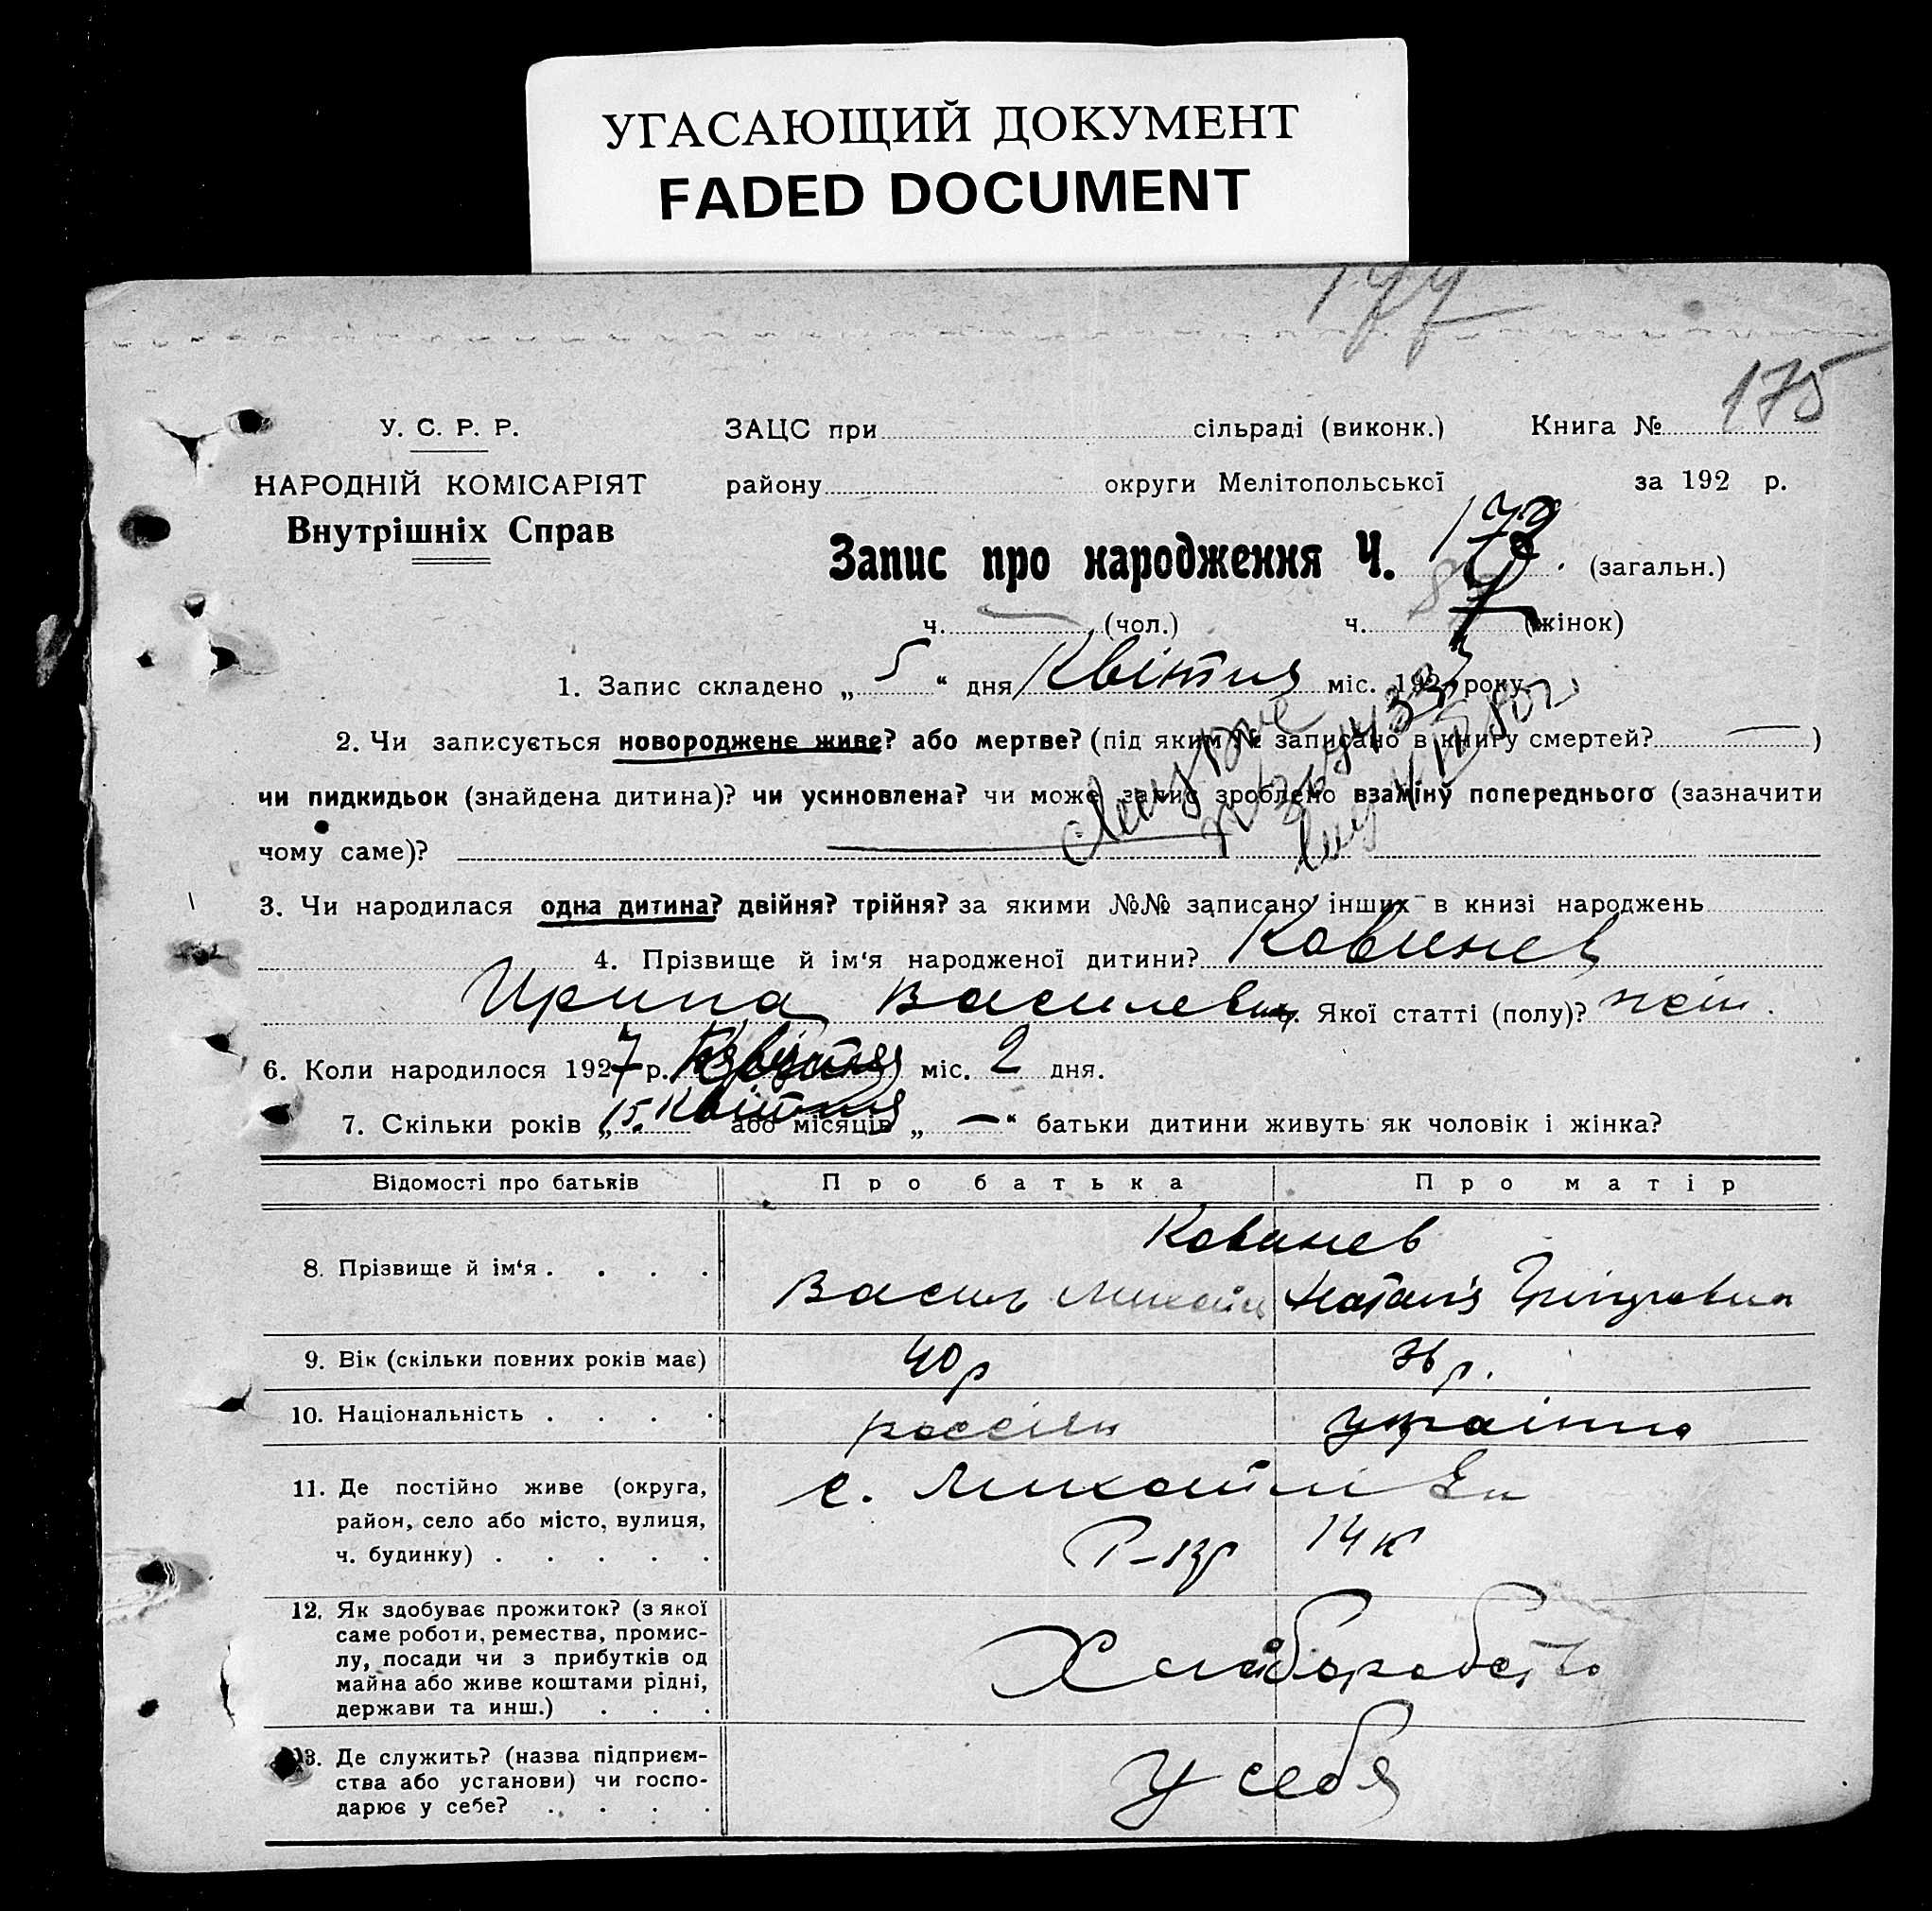 УГАСАЮЩИЙ ДОКУМЕНТ
FADED DOCUMENT
175
У. С. Р. Р.
НАРОДНІЙ КОМІСАРІЯТ
Внутрішніх Справ
ЗАЦС при сільраді (виконк.) Книга №
району округи Мелітопольської за 192 р.
Запис про народження Ч. (загальн.)
ч. (чол.) ч. (жінок)
1. Запис складено „ 5 “ дня Квітня міс. 192 року.
2. Чи записується новороджене живе? або мертве? (під яким № записано в книгу смертей? )
чи пидкидьок (знайдена дитина)? чи усиновлена? чи може запис зроблено взаміну попереднього (зазначити
чому саме)?
3. Чи народилася одна дитина? двійня? трійня? за якими №№ записано інших в книзі народжень
4. Прізвище й ім‘я народженої дитини? Ковинев
Ирина Василевн. Якої статті (полу)? жін.
6. Коли народилося 1927 р. Квітня міс. 2 дня.
Квітня
7. Скільки років „ 15 або місяців „ — “ батьки дитини живуть як чоловік і жінка?
Відомості про батьків Про батька Про матір
Ковинев
8. Прізвище й ім‘я . . . . Василь Наталія
9. Вік (скільки повних років має) 40 р 36 р.
10. Національність . . . .
11. Де постійно живе (округа,
район, село або місто, вулиця,
ч. будинку) . . . . .
с.
12. Як здобуває прожиток? (з якої
саме роботи, ремества, промис-
лу, посади чи з прибутків од
майна або живе коштами рідні,
держави та инш.) . . .
Хліборобство
13. Де служить? (назва підприєм-
ства або установи) чи госпо-
дарює у себе? . . . .
у себя